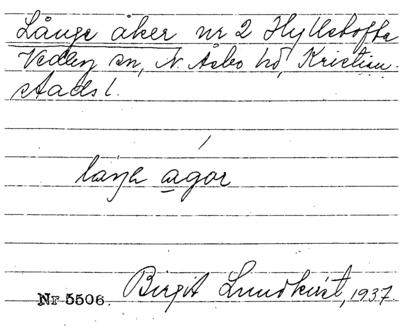 Långe åker nr 2 Hyllstofta
Vedby sn, N. Åsbo hd, Kristian-
stads l.
laŋa agɔr
Birgit Lundkvist, 1937.
Nr 5506.